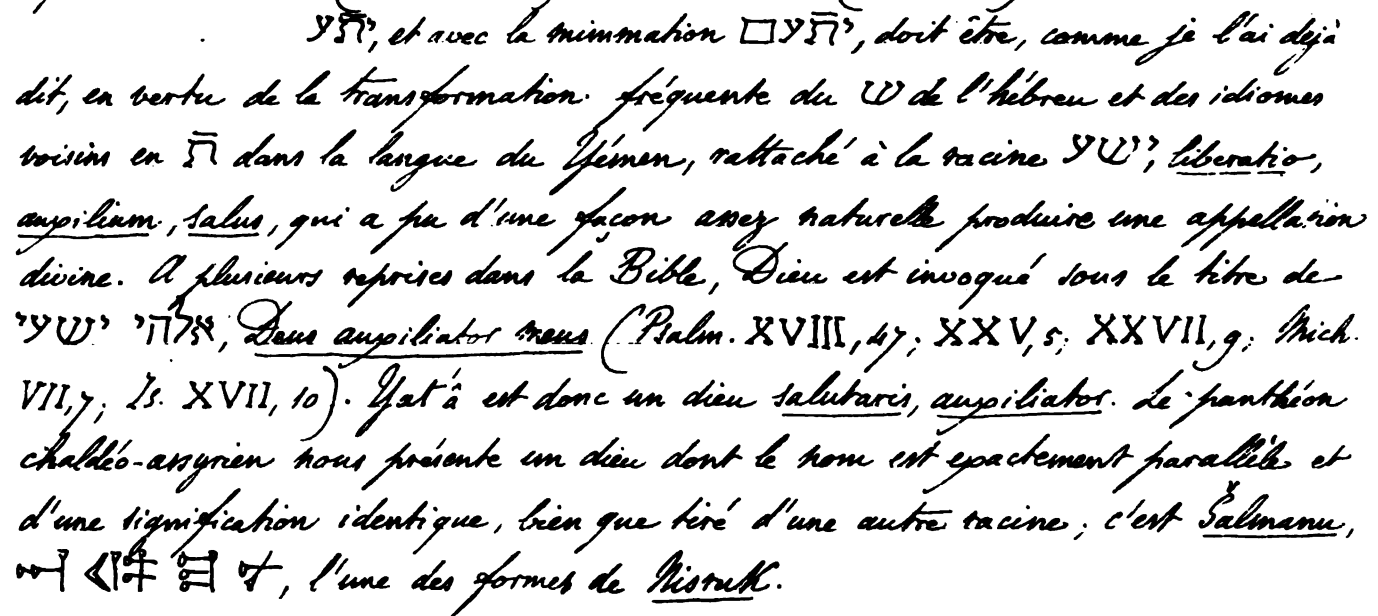 יתֿע, et avec la mimmation יתֿעם, doit être, comme je l'ai dejà
dit, en vertu de la transformation fréquente du ש de l'hébreu et des idiomes
voisins en תֿ dans la langue du Yémen, rattaché à la racine ישע, liberatio,
auxilium, salus, qui a pu d'une façon assez naturelle produire une appellation
divine. A plusieurs reprises dans la Bible, Dieu est invoqué sous le titre de
אלהי ישעי, Deus auxiliator meus (Psalm. XVIII, 47; XXV, 5; XXVII, 9; Mich.
VII, 7; Is. XVII, 10). Yat'â est donc un dieu salutaris, auxiliator. Le panthéon
chaldéo-assyrien nous présente un dieu dont le nom est exactement parallèle et
d'une signification identique, bien que tiré d'une autre racine; c'est Šalmanu,
𒀭 𒁲 𒈠 𒉡, l'une des formes de Nisruk.